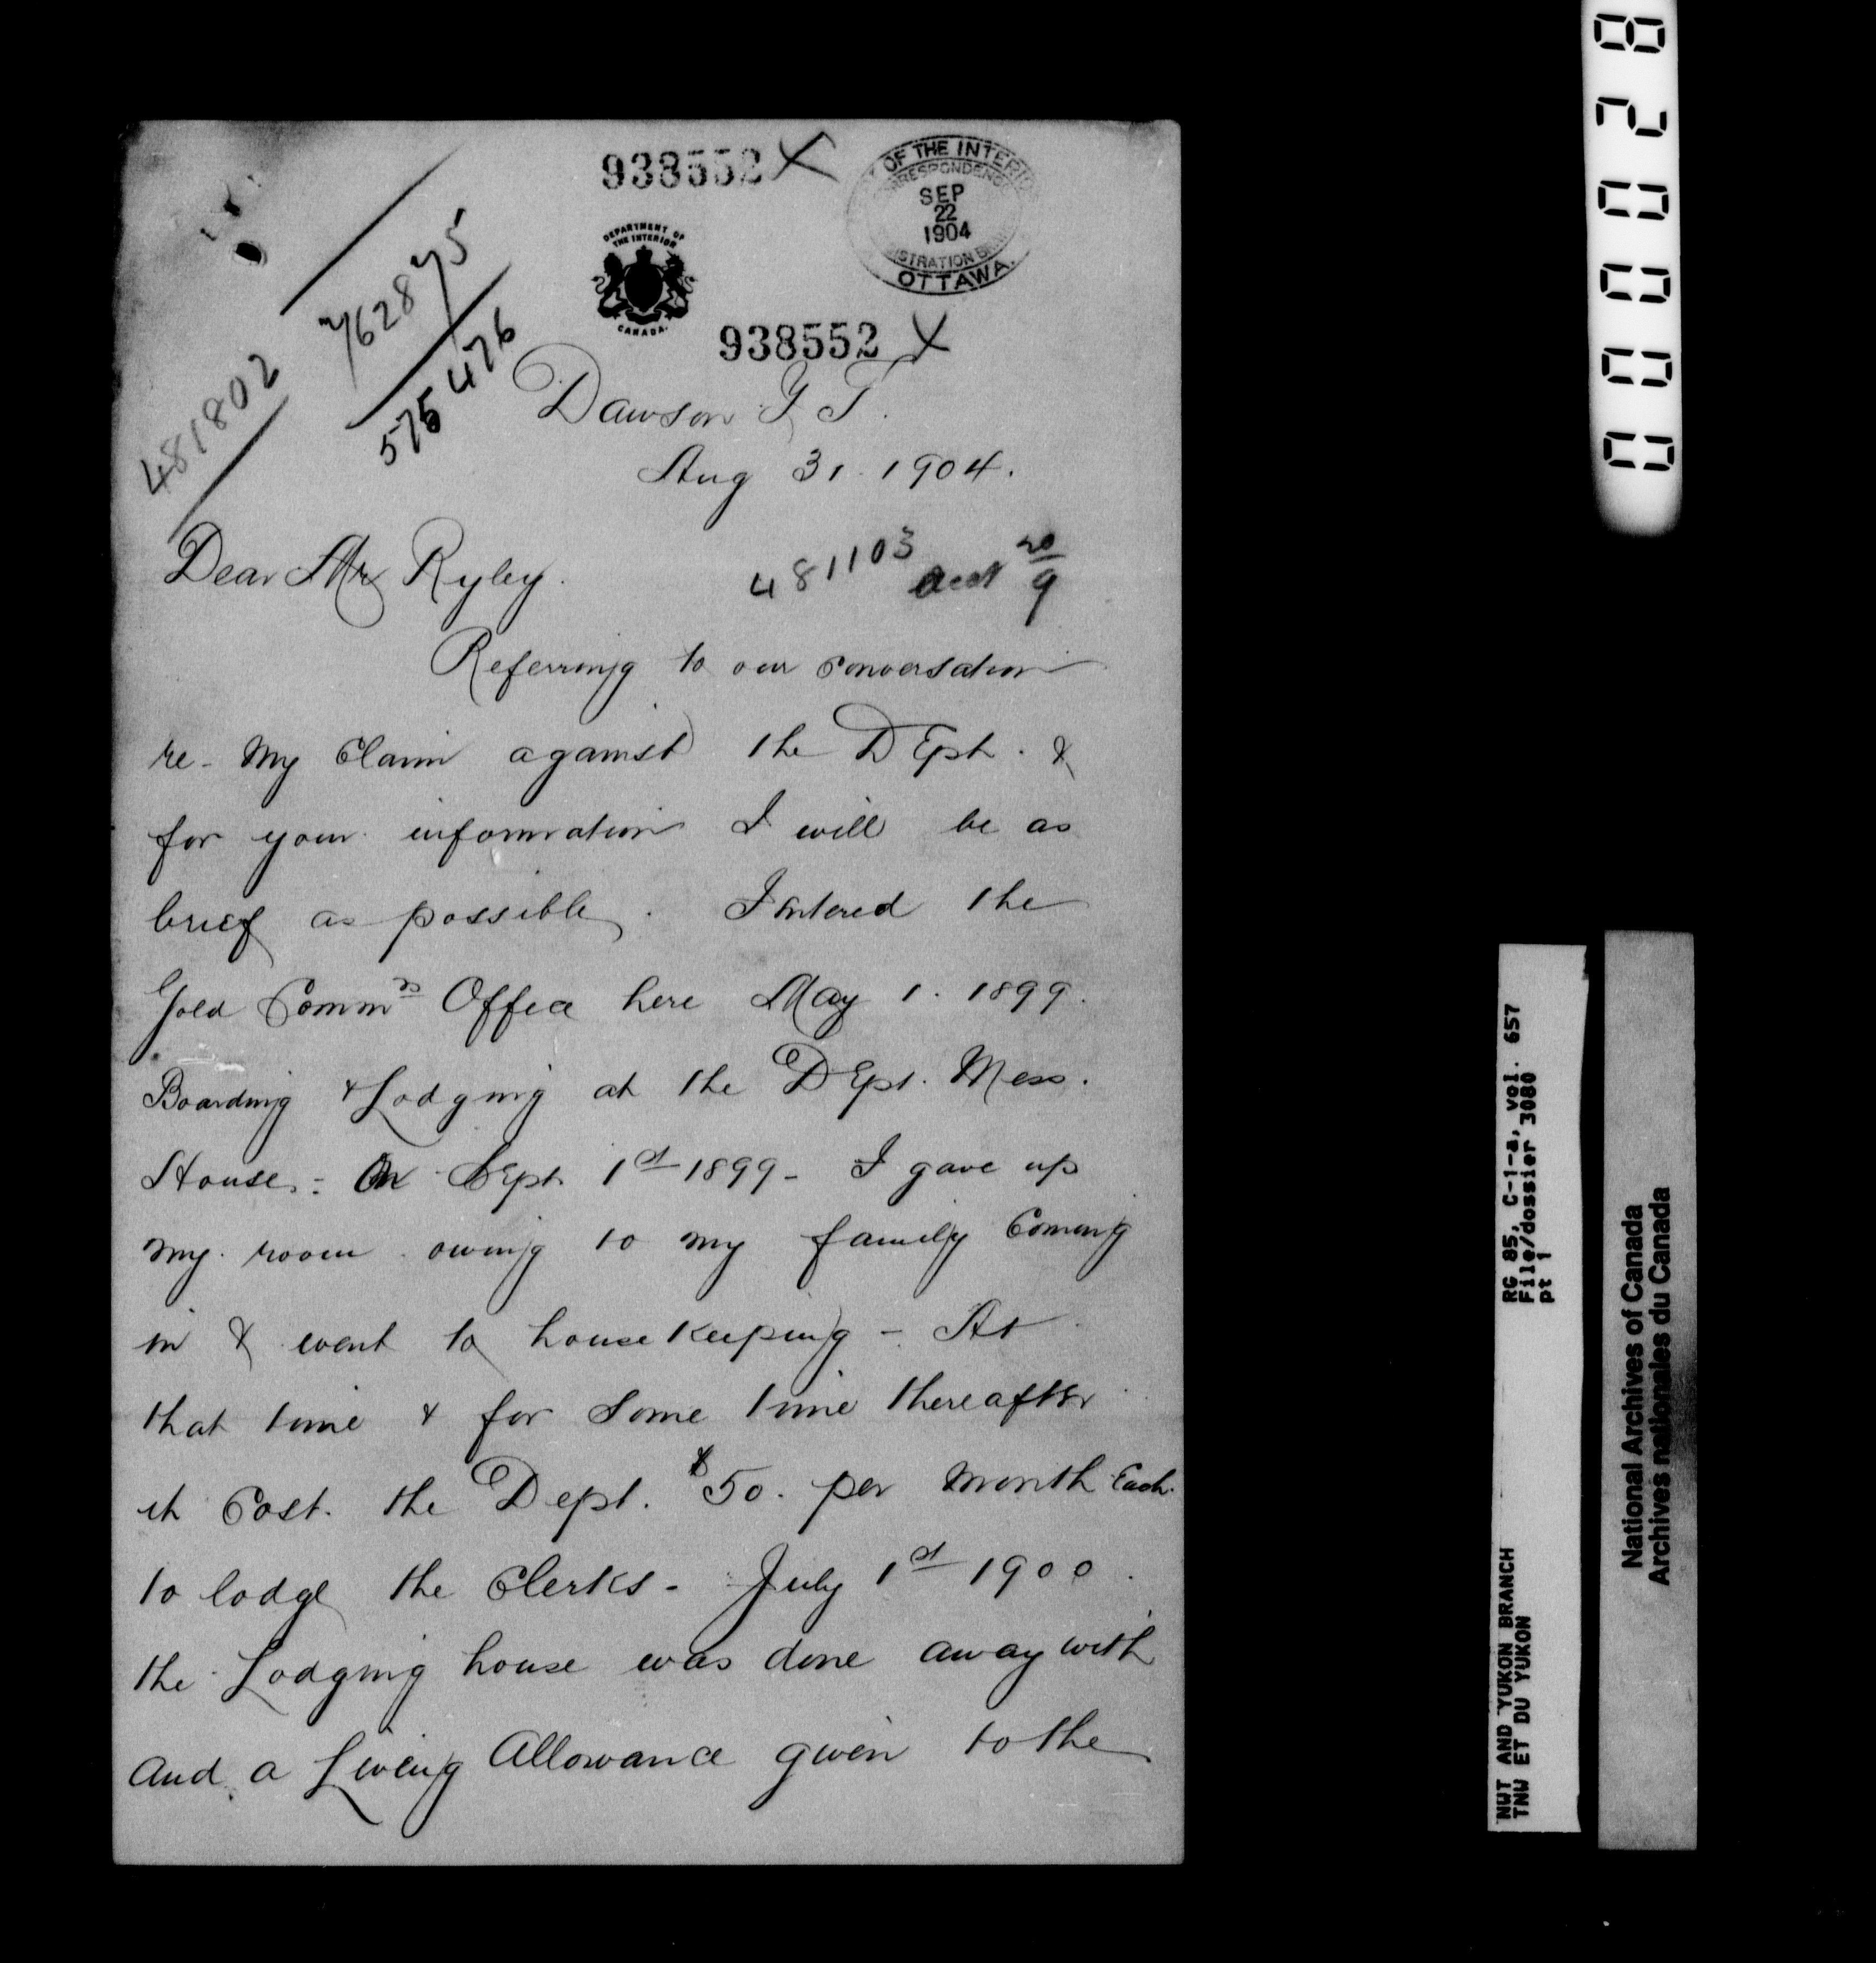 938552 X
DEPARTMENT OF
THE INTERIOR
CANADA.
OF THE INTERIOR
CORRESPONDENCE
SEP
22
1904
REGISTRATION
OTTAWA.
938552 X
762875
575476
481802
Dawson Y T.
Aug 31. 1904.
Dear Mr Ryley.
481103
20
9
Referring to our conversation
re- my claim against the DEpt. &
for your information I will be as
brief as possible. I entered the
Gold Commrs Office here May 1. 1899.
Boarding & Lodging at the DEpt. Mess.
House. - On SEpt. 1st 1899 - I gave up
my room owing to my family Coming
in & went to house keeping - At
that time & for some time thereafter
it Cost. the Dept. $50. per month Each.
to lodge the Clerks - July 1st 1900.
the Lodging house was done away with
And a Living Allowance given to the
82000
RG 85, C-1-a, vol. 657
File/dossier 3080
pt 1
NWT AND YUKON BRANCH
TNW ET DU YUKON
National Archives of Canada
Archives nationales du Canada